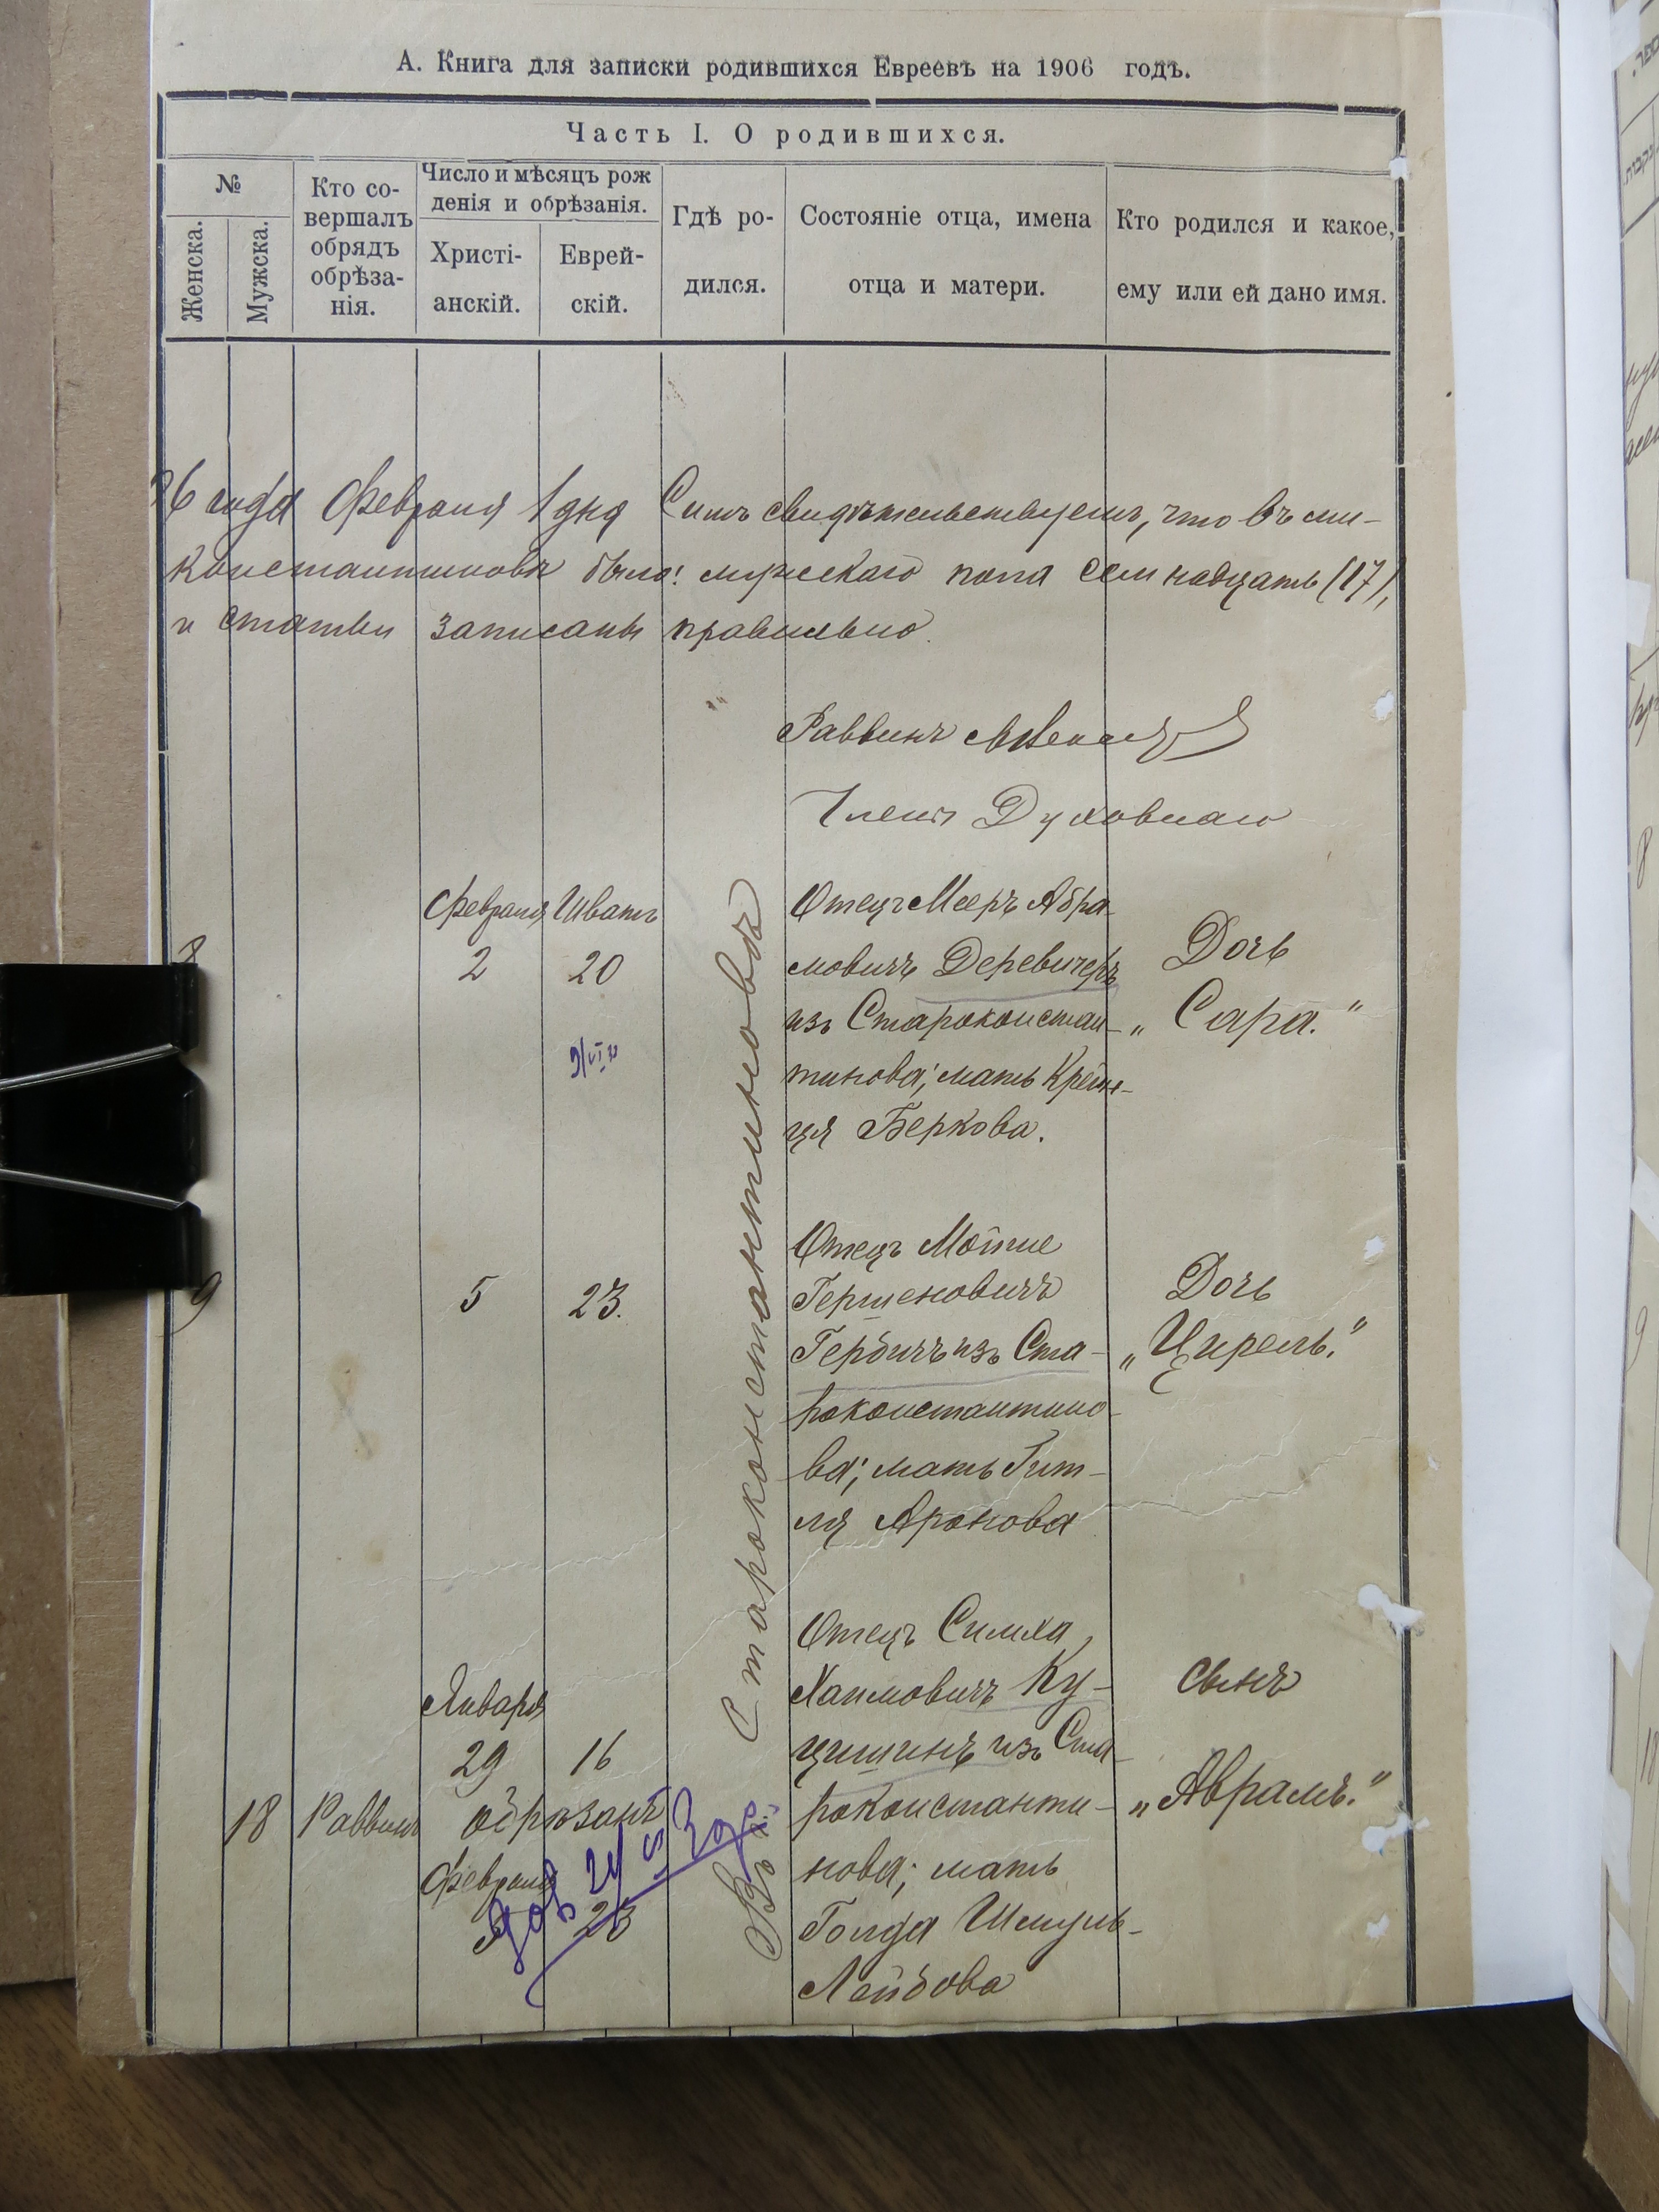 А. Книга для записки родившихся Евреевъ на 1906 годъ.
Часть I. О родившихся.
№
Женска.
Мужска.
Кто со-
вершалъ
обрядъ
обрѣза-
нія.
Число и мѣсяцъ рож
денія и обрѣзанія.
Христі-
анскій.
Еврей-
скій.
Гдѣ ро-
дился.
Состояніе отца, имена
отца и матери.
Кто родился и какое,
ему или ей дано имя.
6 года Февраля 1 дня Симъ свидѣтельствуемъ, что въ ми-
константиновѣ было: мужескаго пола семнадцать (17),
и статьи записаны правильно.
Раввинъ
Члены Духовнаго
Въ г. Староконстантиновѣ
8
Февраля
2
Шватъ
20
9/VI
Отецъ Мееръ Абра-
мовичъ Деревичеръ
изъ Староконстан-
тинова; мать Крейн-
ця Беркова.
Дочь
„Сара."
9
5
23.
Отецъ Мойше
Гершеновичъ
Гербичъ изъ Ста-
роконстантино-
ва; мать Гит-
ля Аронова
Дочь
„Цирель."
18
Раввинъ
Января
29
16
обрѣзанъ
Февраля
5
23
Отецъ Симха
Хаимовичъ Ку-
цишинъ изъ Ста-
роконстанти-
нова; мать
Голда Шмуль-
Лейбова
Сынъ
„Аврамъ."